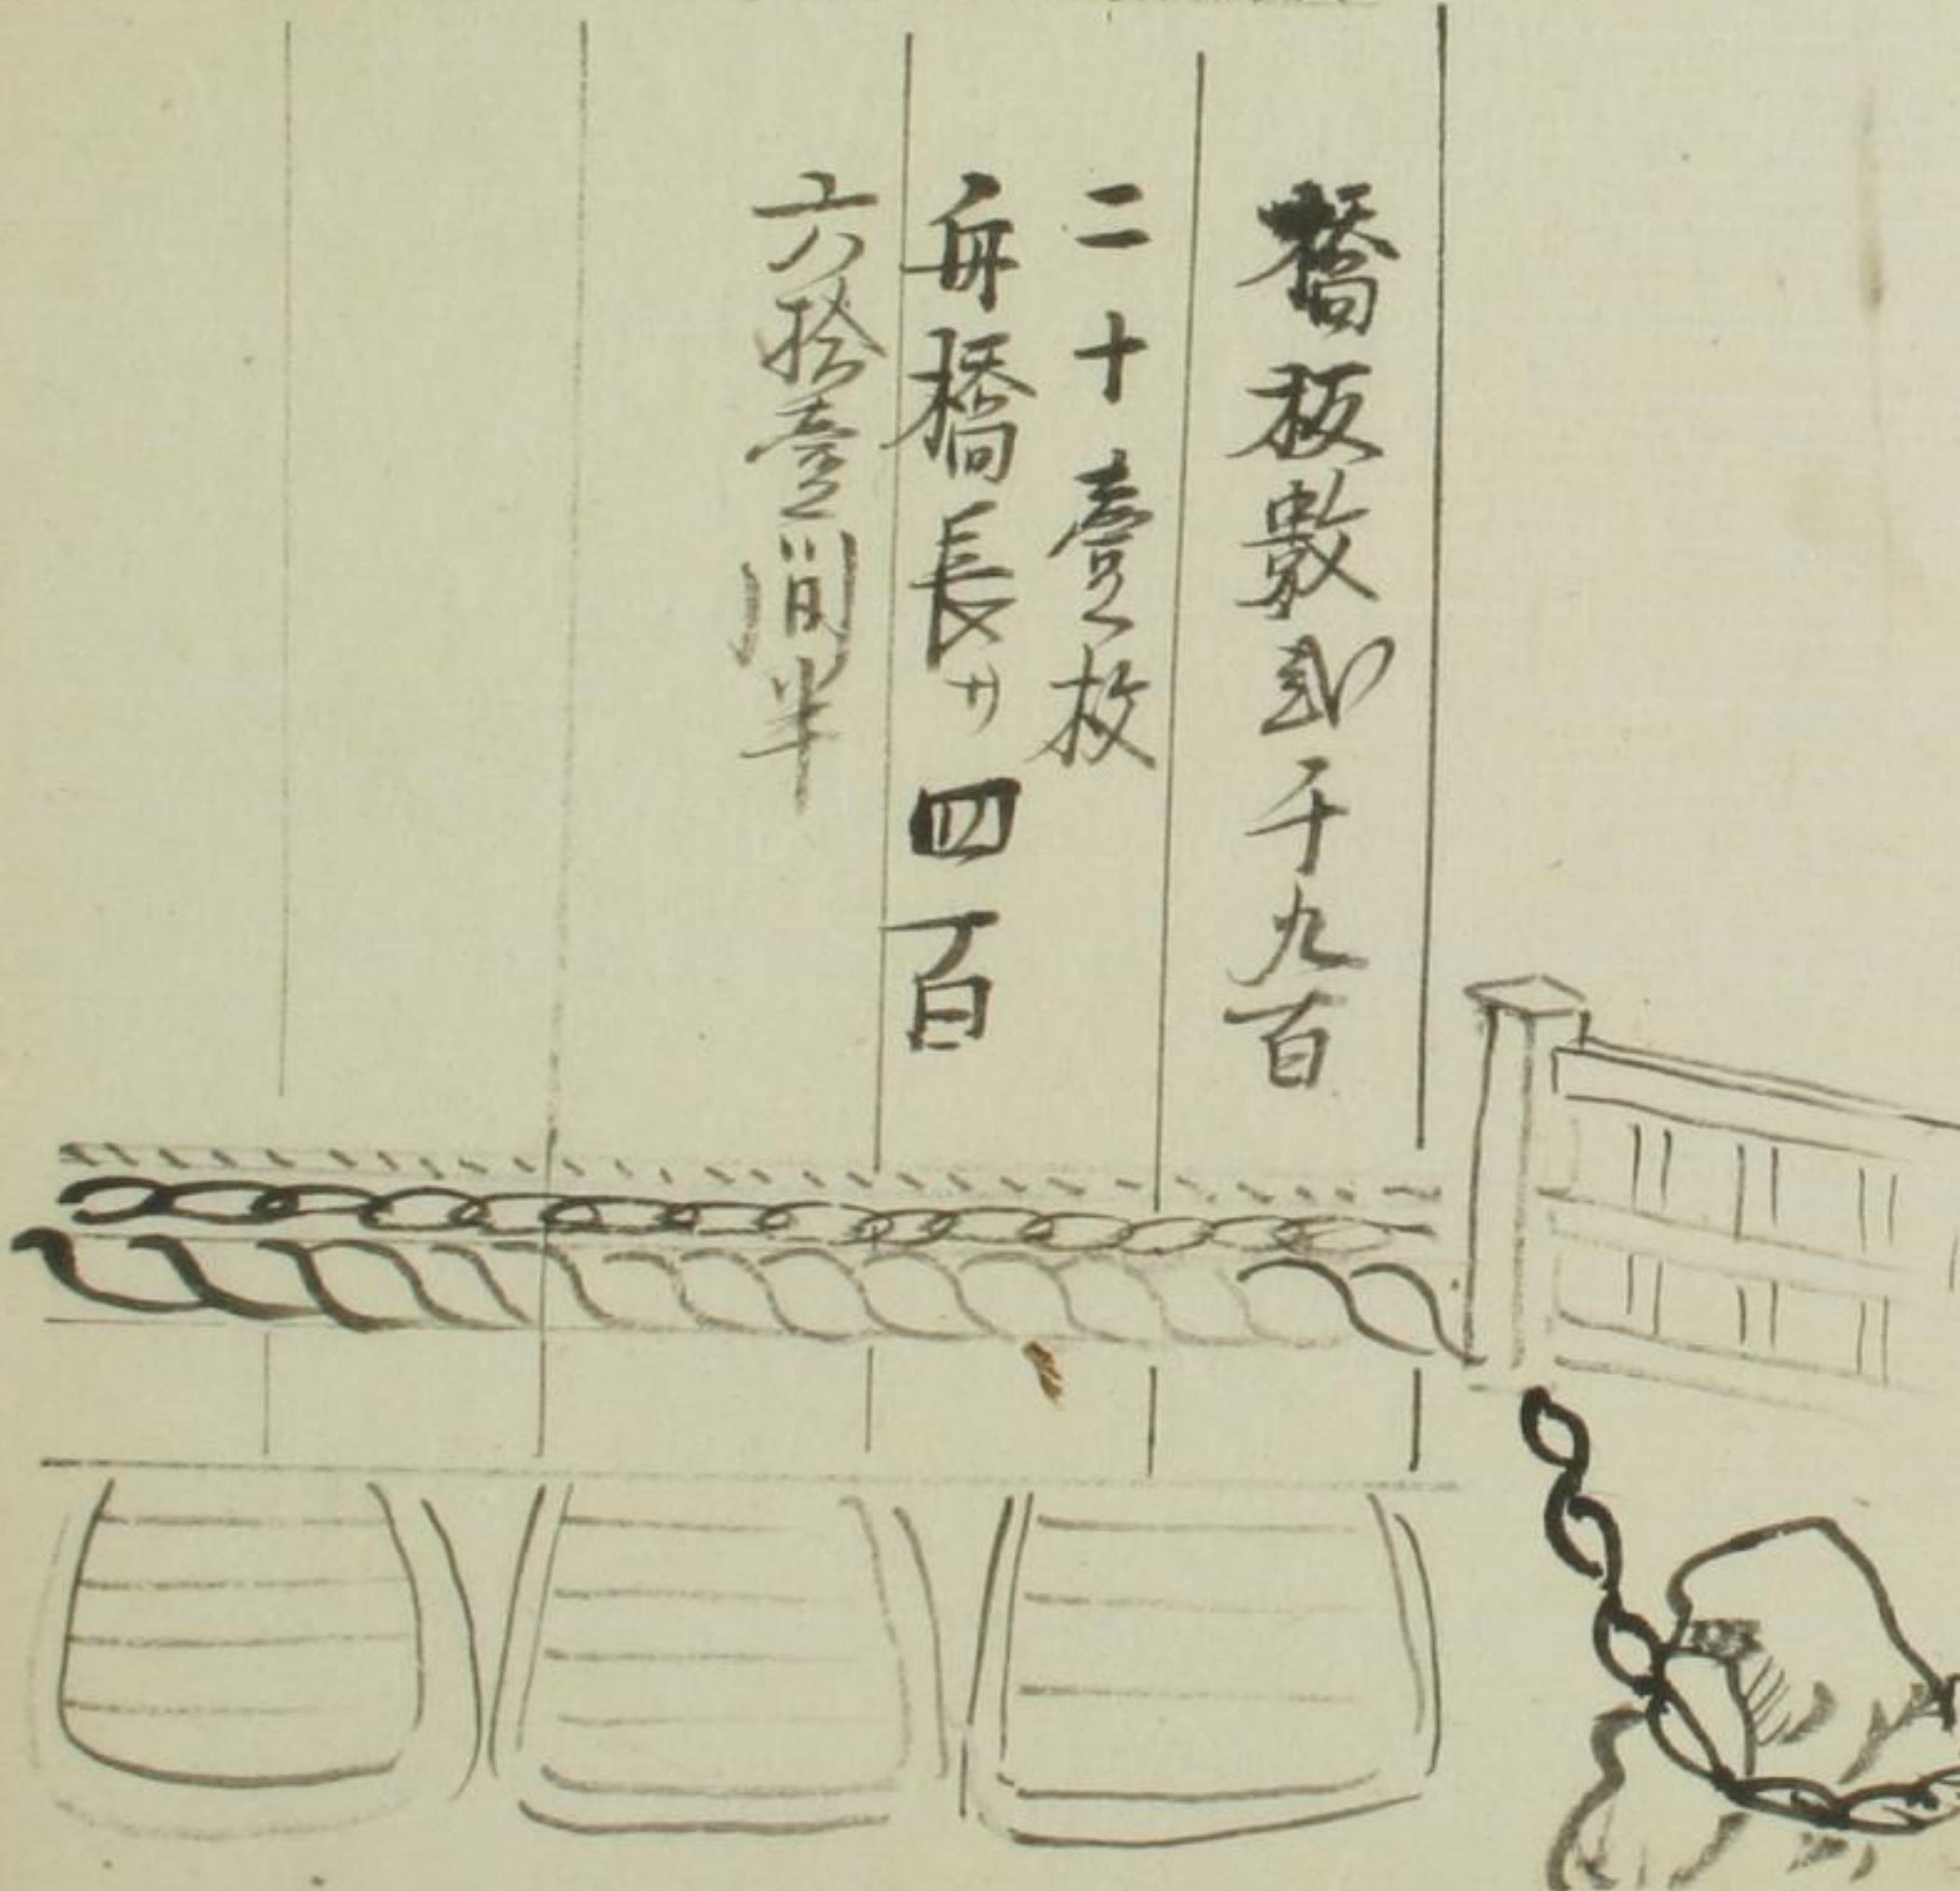 橋板数弐千九百
二十壹枚
舟橋長サ四百
六拾壹間半